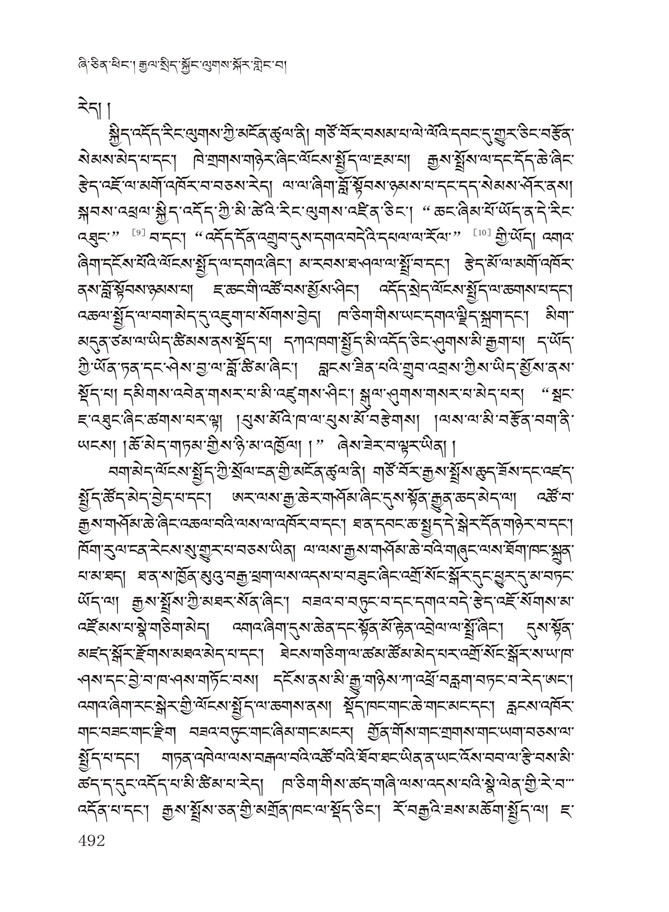 ཞི་ཅིན་ཕིང་། རྒྱལ་སྲིད་སྐྱོང་ལུགས་སྐོར་གླེང་བ།
རེད། །
སྐྱིད་འདོད་རིང་ལུགས་ཀྱི་མངོན་ཚུལ་ནི། གཙོ་བོར་བསམ་པ་ལེ་ལོའི་དབང་དུ་གྱུར་ཅིང་བརྩོན་
སེམས་མེད་པ་དང་། ཁེ་གྲགས་གཉེར་ཞིང་ལོངས་སྤྱོད་ལ་རྔམ་པ། རྒྱས་སྤྲོས་ལ་དང་དོད་ཆེ་ཞིང་
རྩེད་འཇོ་ལ་མགོ་འཁོར་བ་བཅས་རེད། ལ་ལ་ཞིག་བློ་སྟོབས་ཉམས་པ་དང་དད་སེམས་ཤོར་ནས།
སྐབས་འཕྲལ་སྐྱིད་འདོད་ཀྱི་མི་ཚེའི་རིང་ལུགས་འཛིན་ཅིང་། “ཆང་ཞིམ་པོ་ཡོད་ན་དེ་རིང་
འཐུང་” [9] བ་དང་། “འདོད་དོན་འགྲུབ་དུས་དགའ་བདེའི་དཔལ་ལ་རོལ་” [10] གྱི་ཡོད། འགའ་
ཞིག་དངོས་པོའི་ལོངས་སྤྱོད་ལ་དགའ་ཞིང་། མ་རབས་ཐ་ཤལ་ལ་སྤྲོ་བ་དང་། རྩེད་མོ་ལ་མགོ་འཁོར་
ནས་བློ་སྟོབས་ཉམས་པ། ཇ་ཆང་གི་འཚོ་བས་མྱོས་ཤིང་། འདོད་སྲེད་ལོངས་སྤྱོད་ལ་ཆགས་པ་དང་།
འཆལ་སྤྱོད་ལ་བག་མེད་དུ་འཇུག་པ་སོགས་བྱེད། ཁ་ཅིག་གིས་ཡང་དགའ་ལྗིད་སྐྲག་དང་། མིག་
མདུན་ཙམ་ལ་ཡིད་ཚིམས་ནས་སྡོད་པ། དཀའ་ཁག་སྤྱོད་མི་འདོད་ཅིང་ཤུགས་མི་རྒྱག་པ། ད་ཡོད་
ཀྱི་ཡོན་ཏན་དང་ཤེས་བྱ་ལ་བློ་ཚིམ་ཞིང་། བླངས་ཟིན་པའི་གྲུབ་འབྲས་ཀྱིས་ཡིད་མྱོས་ནས་
སྡོད་པ། དམིགས་འབེན་གསར་པ་མི་འཛུགས་ཤིང་། སྐུལ་ཤུགས་གསར་པ་མེད་པར། “སྦང་
ཇ་འཐུང་ཞིང་ཚགས་པར་ལྟ། །པུས་མོའི་ཁ་ལ་པུས་མོ་བརྩེགས། །ལས་ལ་མི་བརྩོན་བག་ནི་
ཡངས། །ཆོ་མེད་གཏམ་གྱིས་ཉི་མ་འཁྱོལ། །” ཞེས་ཟེར་བ་ལྟར་ཡིན། །
བག་མེད་ལོངས་སྤྱོད་ཀྱི་སྲོལ་ངན་གྱི་མངོན་ཚུལ་ནི། གཙོ་བོར་རྒྱས་སྤྲོས་ཆུད་ཟོས་དང་འཛད་
སྤྱོད་ཚོད་མེད་བྱེད་པ་དང་། ཨར་ལས་རྒྱ་ཆེར་གཤོམ་ཞིང་དུས་སྟོན་རྒྱུན་ཆད་མེད་ལ། འཚོ་བ་
རྒྱས་གཤོམ་ཆེ་ཞིང་འཆལ་བའི་ལས་ལ་འཁོར་བ་དང་། ཐ་ན་དབང་ཆ་སྤྱད་དེ་སྒེར་དོན་གཉེར་བ་དང་།
ཁོག་རུལ་ངན་རེངས་སུ་གྱུར་པ་བཅས་ཡིན། ལ་ལས་རྒྱས་གཤོམ་ཆེ་བའི་གཞུང་ལས་ཐོག་ཁང་སྐྲུན་
པ་མ་ཟད། ཐ་ན་ས་ཁྱོན་མུའུ་བརྒྱ་ཕྲག་ལས་འདས་པ་བཟུང་ཞིང་འགྲོ་སོང་སྒོར་དུང་ཕྱུར་དུ་མ་བཏང་
ཡོད་ལ། རྒྱས་སྤྲོས་ཀྱི་མཐར་སོན་ཞིང་། བཟའ་བ་བཏུང་བ་དང་དགའ་བདེ་རྩེད་འཇོ་སོགས་མ་
འཛོམས་པ་སྣེ་གཅིག་མེད། འགའ་ཞིག་དུས་ཆེན་དང་སྟོན་མོ་རྟེན་འབྲེལ་ལ་སྤྲོ་ཞིང་། དུས་སྟོན་
མཛད་སྒོར་རྫོགས་མཐའ་མེད་པ་དང་། ཐེངས་གཅིག་ལ་ཚམ་ཚོམ་མེད་པར་འགྲོ་སོང་སྒོར་ས་ཡ་ཁ་
ཤས་དང་བྱེ་བ་ཁ་ཤས་གཏོང་བས། དངོས་ནས་མི་རྒྱུ་གཉིས་ཀ་འཕྲོ་བརླག་བཏང་བ་རེད་ཨང་།
འགའ་ཞིག་རང་སྒེར་གྱི་ལོངས་སྤྱོད་ལ་ཆགས་ནས། སྡོད་ཁང་གང་ཆེ་གང་མང་དང་། རླངས་འཁོར་
གང་བཟང་གང་རྫིག བཟའ་བཏུང་གང་ཞིམ་གང་མངར། གྱོན་གོས་གང་གྲགས་གང་ཡག་བཅས་ལ་
སྤྱོད་པ་དང་། གཏན་འཁེལ་ལས་བརྒལ་བའི་འཚོ་བའི་ཐོབ་ཐང་ཡིན་ན་ཡང་འོས་བབ་ལ་རྩི་བས་མི་
ཚད་ད་དུང་འདོད་པ་མི་ཚིམ་པ་རེད། ཁ་ཅིག་གིས་ཚད་གཞི་ལས་འདས་པའི་སྣེ་ལེན་གྱི་རེ་བ་
འདོན་པ་དང་། རྒྱས་སྤྲོས་ཅན་གྱི་མགྲོན་ཁང་ལ་སྡོད་ཅིང་། རོ་བརྒྱའི་ཟས་མཆོག་སྤྱོད་ལ། ཇ་
492